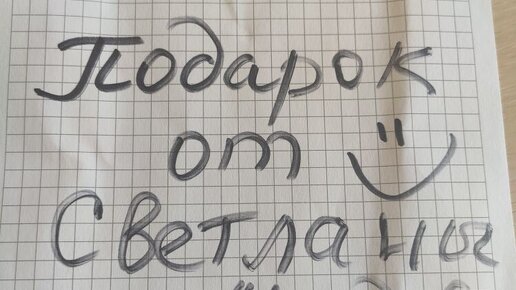 Подарок
от
Светланы